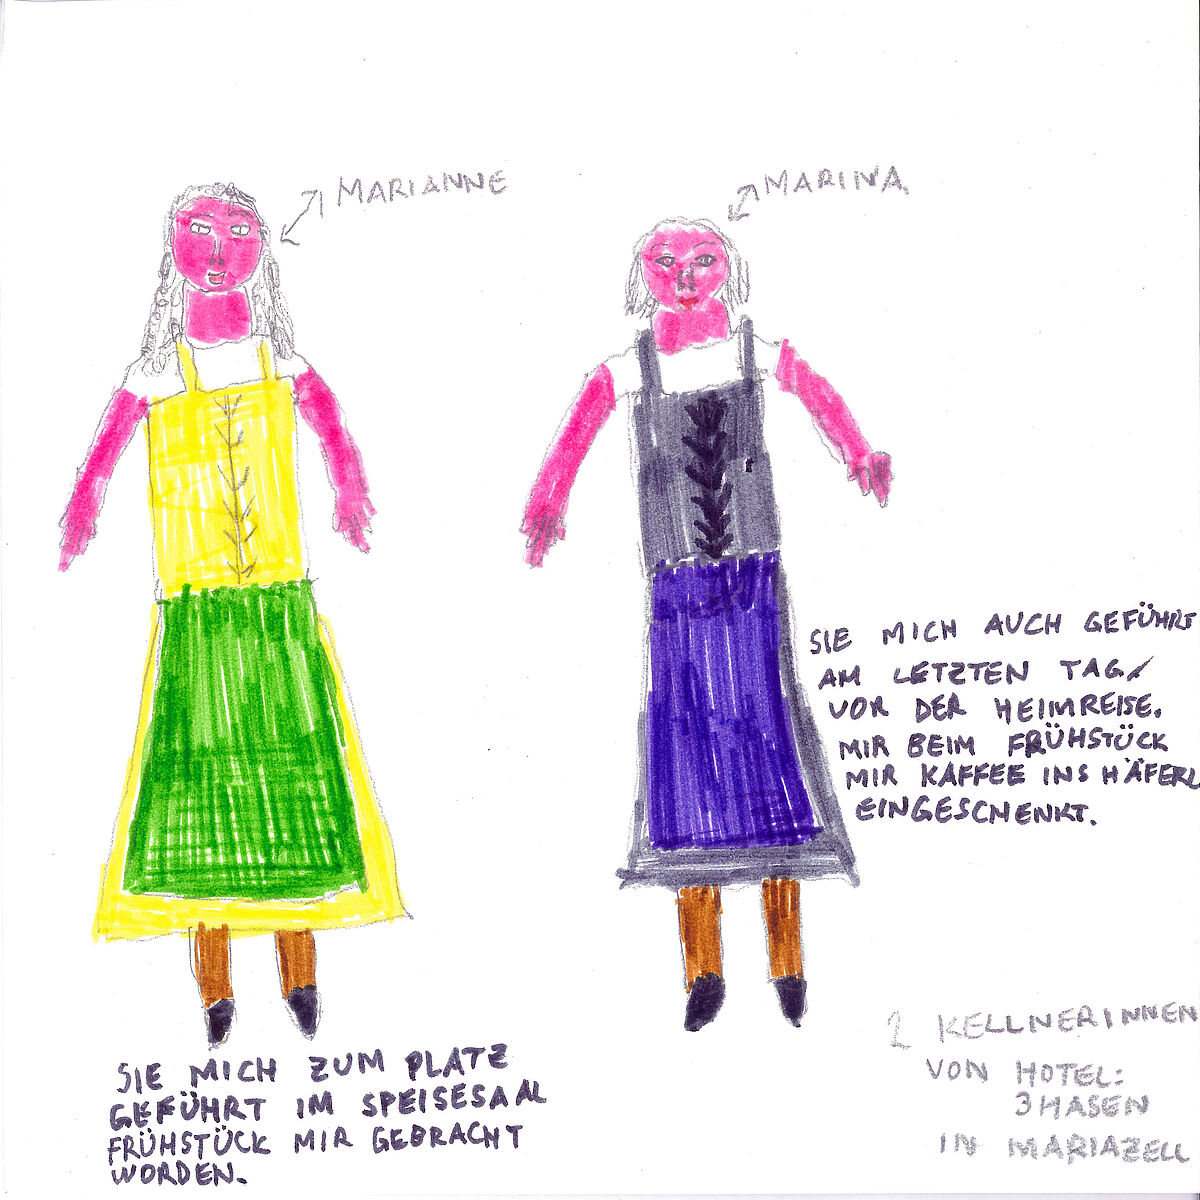 MARIANNE
MARINA.
SIE MICH AUCH GEFÜHRT
AM LETZTEN TAG,
VOR DER HEIMREISE.
MIR BEIM FRÜHSTÜCK
MIR KAFFEE INS HÄFERL
EINGESCHENKT.
2 KELLNERINNEN
VON HOTEL:
3HASEN
IN MARIAZELL
SIE MICH ZUM PLATZ
GEFÜHRT IM SPEISESAAL
FRÜHSTÜCK MIR GEBRACHT
WORDEN.